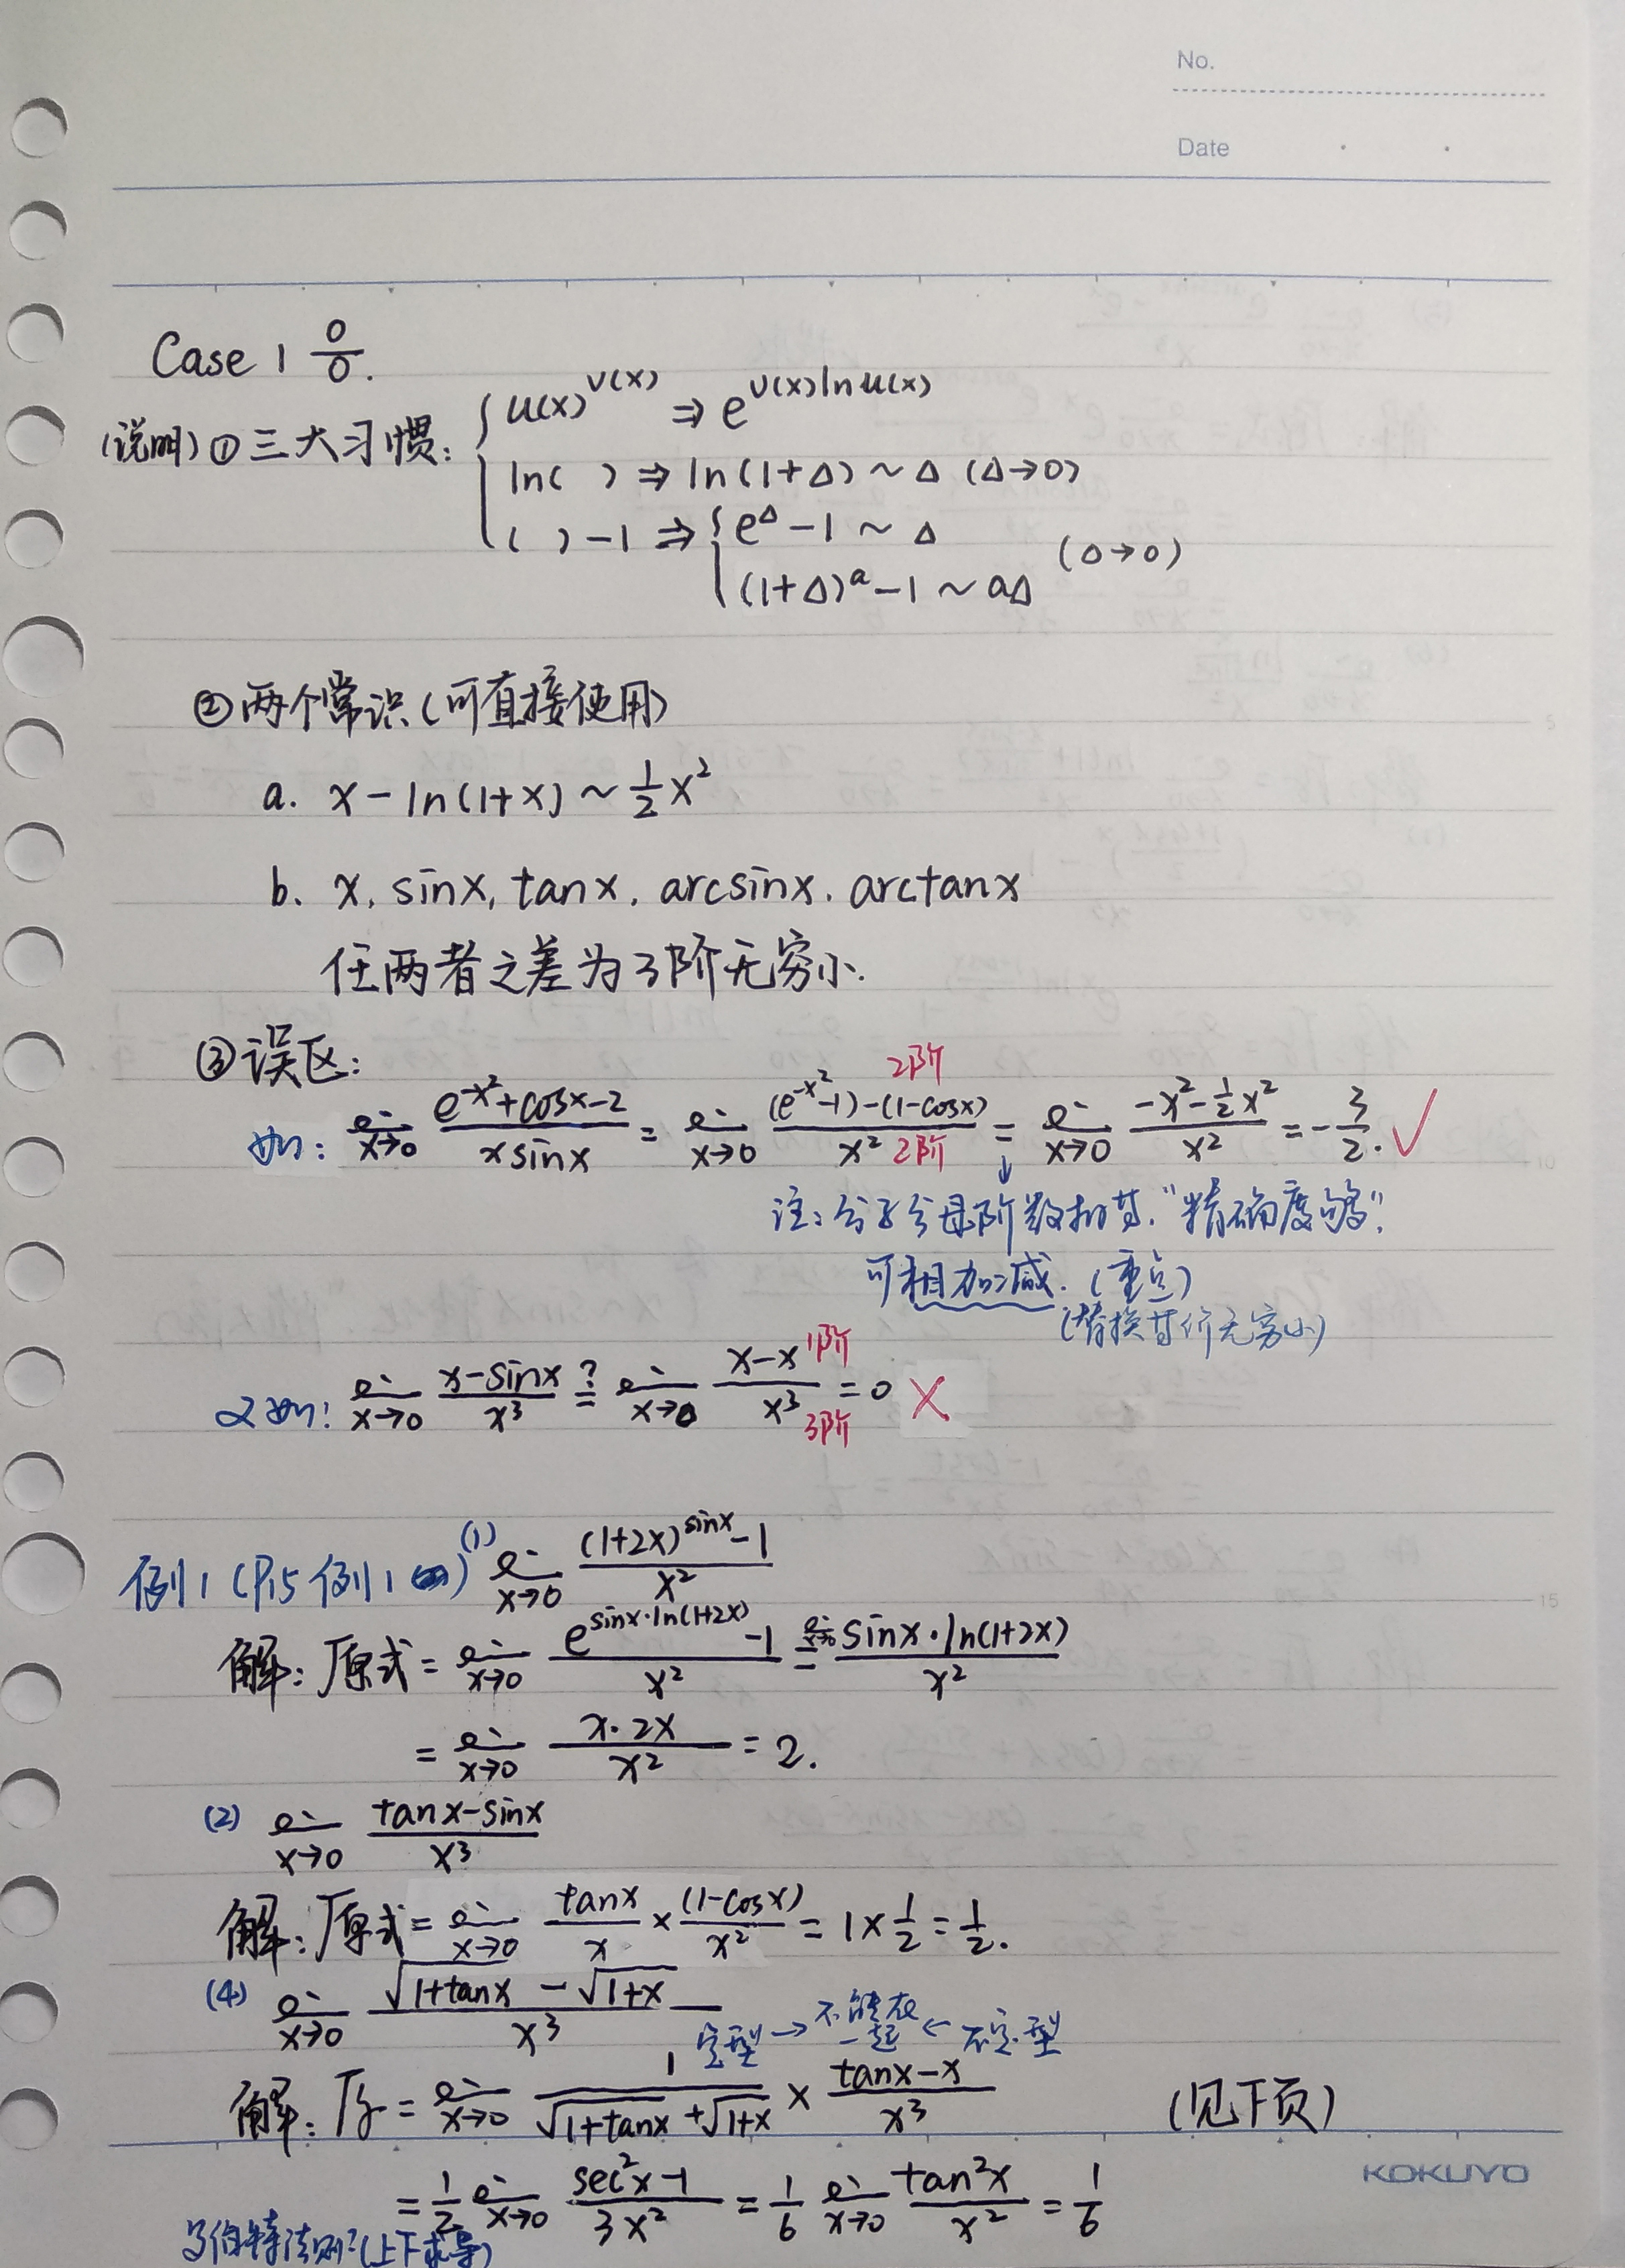 No.
Date
Case 1 0/0.
(说明) ① 三大习惯: { u(x)^v(x) ⇒ e^(v(x)lnu(x))
ln( ) ⇒ ln(1+Δ) ~ Δ (Δ→0)
( ) -1 ⇒ { e^Δ - 1 ~ Δ
(1+Δ)^a - 1 ~ aΔ (Δ→0)
② 两个常识 (可直接使用)
a. x - ln(1+x) ~ 1/2 x²
b. x, sinx, tanx, arcsinx, arctanx
任两者之差为3阶无穷小.
③ 误区:
如: lim x→0 (e^(-x²)+cosx-2)/(x sinx) = lim x→0 ((e^(-x²)-1)-(1-cosx))/x² 2阶 2阶 = lim x→0 (-x²-1/2x²)/x² = -3/2. ✓
注: 分子分母阶数相等. "精确度够".
可相加减. (重点)
(替换等价无穷小)
又如: lim x→0 (x-sinx)/x³ ?= lim x→0 (x-x)/x³ 1阶 3阶 = 0 ×
例1 (P15 例1) (1) lim x→0 ((1+2x)^sinx - 1)/x²
解: 原式 = lim x→0 (e^(sinx·ln(1+2x)) - 1)/x² = lim x→0 (sinx·ln(1+2x))/x²
= lim x→0 (x·2x)/x² = 2.
(2) lim x→0 (tanx-sinx)/x³
解: 原式 = lim x→0 tanx/x × (1-cosx)/x² = 1×1/2 = 1/2.
(4) lim x→0 (√(1+tanx) - √(1+x))/x³
定型 → 不能在一起 ← 不定型
解: 原 = lim x→0 1/(√(1+tanx)+√(1+x)) × (tanx-x)/x³ (见下页)
KOKUYO
= 1/2 lim x→0 (sec²x-1)/3x² = 1/6 lim x→0 tan²x/x² = 1/6
(上下求导)